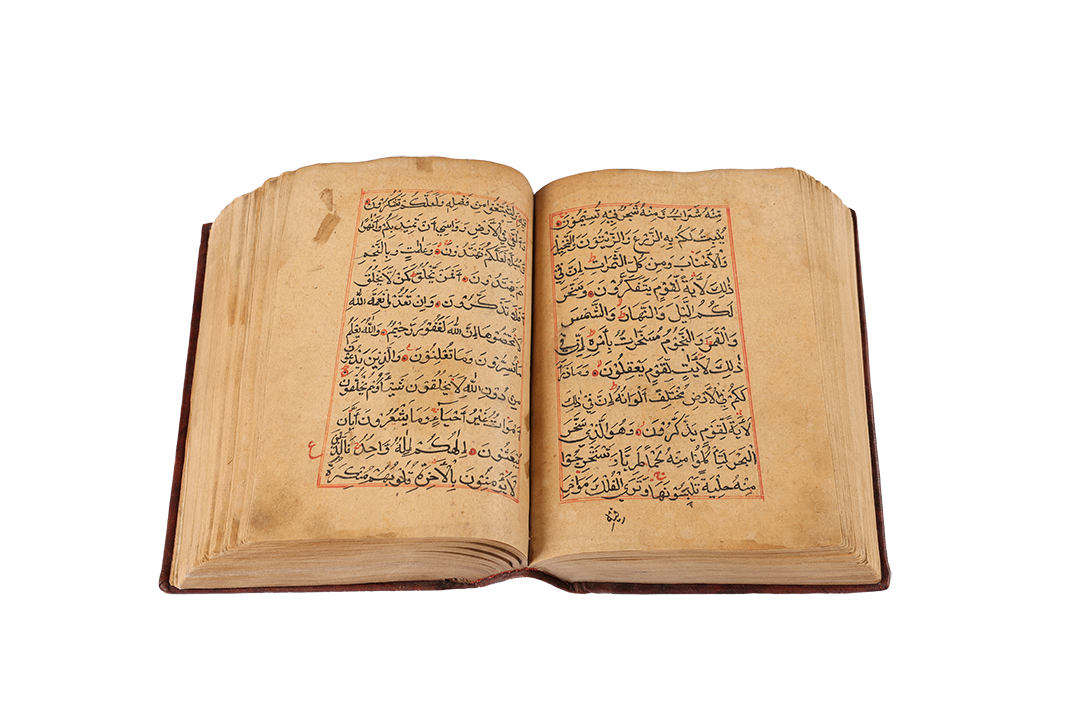 مِنْهُ شَرَابٌ وَمِنْهُ شَجَرٌ فِيهِ تُسِيمُونَ
يُنْبِتُ لَكُمْ بِهِ الزَّرْعَ وَالزَّيْتُونَ وَالنَّخِيلَ
وَالْأَعْنَابَ وَمِنْ كُلِّ الثَّمَرَاتِ إِنَّ فِي
ذَٰلِكَ لَآيَةً لِقَوْمٍ يَتَفَكَّرُونَ وَسَخَّرَ
لَكُمُ الَّيْلَ وَالنَّهَارَ وَالشَّمْسَ
وَالْقَمَرَ وَالنُّجُومُ مُسَخَّرَاتٌ بِأَمْرِهِ إِنَّ فِي
ذَٰلِكَ لَآيَاتٍ لِقَوْمٍ يَعْقِلُونَ وَمَا ذَرَأَ
لَكُمْ فِي الْأَرْضِ مُخْتَلِفًا أَلْوَانُهُ إِنَّ فِي ذَٰلِكَ
لَآيَةً لِقَوْمٍ يَذَّكَّرُونَ وَهُوَ الَّذِي سَخَّرَ
الْبَحْرَ لِتَأْكُلُوا مِنْهُ لَحْمًا طَرِيًّا وَتَسْتَخْرِجُوا
مِنْهُ حِلْيَةً تَلْبَسُونَهَا وَتَرَى الْفُلْكَ مَوَاخِرَ
فِيهِ وَلِتَبْتَغُوا مِنْ فَضْلِهِ وَلَعَلَّكُمْ تَشْكُرُونَ
وَأَلْقَىٰ فِي الْأَرْضِ رَوَاسِيَ أَنْ تَمِيدَ بِكُمْ وَأَنْهَارًا
وَسُبُلًا لَعَلَّكُمْ تَهْتَدُونَ وَعَلَامَاتٍ وَبِالنَّجْمِ
هُمْ يَهْتَدُونَ أَفَمَنْ يَخْلُقُ كَمَنْ لَا يَخْلُقُ
أَفَلَا تَذَكَّرُونَ وَإِنْ تَعُدُّوا نِعْمَةَ اللَّهِ
لَا تُحْصُوهَا إِنَّ اللَّهَ لَغَفُورٌ رَحِيمٌ وَاللَّهُ يَعْلَمُ
مَا تُسِرُّونَ وَمَا تُعْلِنُونَ وَالَّذِينَ يَدْعُونَ
مِنْ دُونِ اللَّهِ لَا يَخْلُقُونَ شَيْئًا وَهُمْ يُخْلَقُونَ
أَمْوَاتٌ غَيْرُ أَحْيَاءٍ وَمَا يَشْعُرُونَ أَيَّانَ
يُبْعَثُونَ إِلَٰهُكُمْ إِلَٰهٌ وَاحِدٌ فَالَّذِينَ
لَا يُؤْمِنُونَ بِالْآخِرَةِ قُلُوبُهُمْ مُنْكِرَةٌ
ع